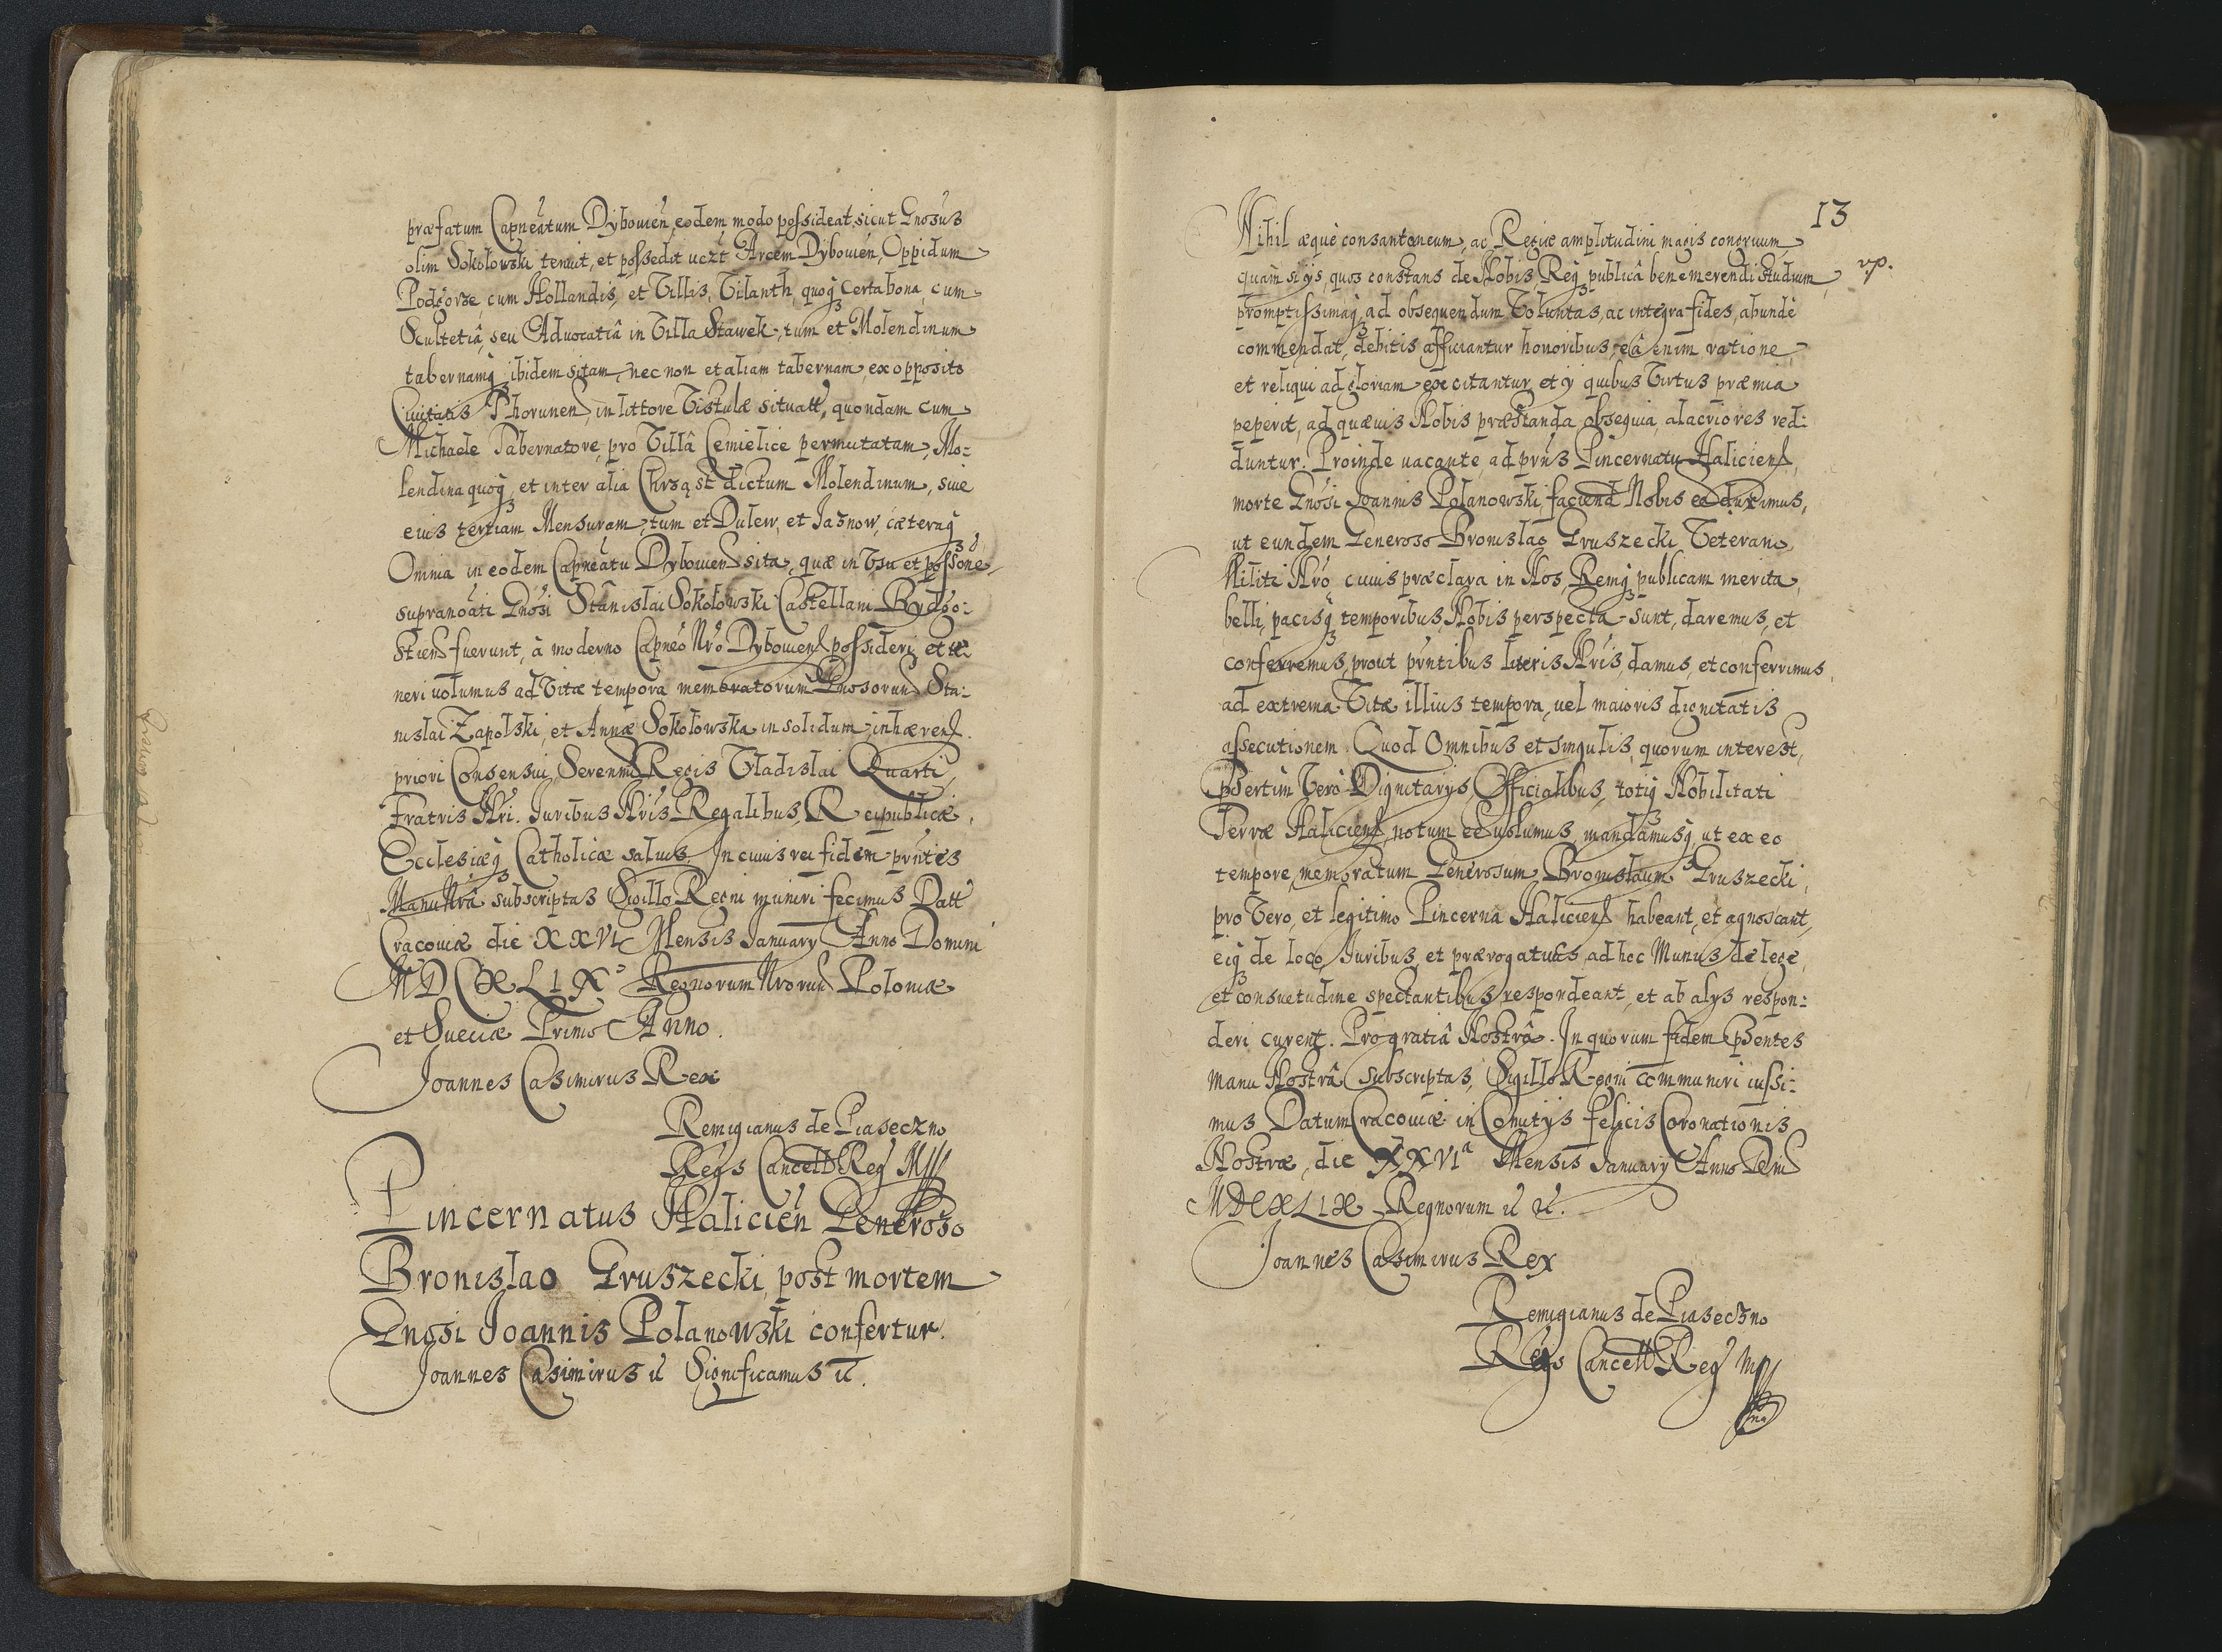 præfatum Capneatum Dybouien, eodem modo possideat, sicut Gnosus
olim Sokołowski tenuit, et possedit uczt Arcem Dybouien, Oppidum
Podgorze, cum Hollandis, et Villis, Vilanth, quoq3 certa bona, cum
Scultetiâ, seu Aduocatiâ in Villa Stawek, tum et Molendinum
tabernamq3 ibidem sitam, nec non et aliam tabernam, ex opposito
Ciuitatis Thorunen, in littore Vistulæ situatt, quondam cum
Michaele Tabernatore, pro Villâ Cemielice permutatam, Mo:
lendina quoq3, et inter alia Chrząst dictum Molendinum, siue
eius tertiam Mensuram, tum et Dulew, et Jasnow, cæteraq3
Omnia in eodem Capneatu Dybouien sita, quæ in Vsu et possone
supranoati Gnosi Stanislai Sokołowski Castellani Bydgo:
stien fuerunt, à moderno Capneo Nro Dybouien possideri, et te
neri uolumus ad Vitæ tempora memoratorum Gnosorum Sta:
nislai Zapolski, et Annæ Sokołowska in solidum, inhæren.
priori Consensui Serenmi Regis Vladislai Quarti,
Fratris Nri. Iuribus Nris Regalibus, Reipublicæ,
Ecclesiæq3 Catholicæ saluis. In cuius rei fidem pntes
Manu Nrâ subscriptas Sigillo Regni muniri fecimus Datt
Cracouiæ die XXVI Mensis January Anno Domini
MDCXLIXo Regnorum Nrorum Poloniæ
et Sueciæ Primo Anno.
Joannes Casimirus Rex
Remigianus de Piaseczno
Regs Cancell Reg Mp
Pincernatus Halicien Generoso
Bronislao Gruszecki, post mortem
Gnosi Joannis Polanowski confertur.
Joannes Casimirus &c Significamus &c.
13
Nihil æquè consantaneum, ac Regiæ amplitudini magis congruum
quam si ys, quos constans de Nobis, Req3 publicâ bene merendi Studium,
vp.
promptissimaq3 ad obsequendum Voluntas, ac integra fides, abundè
commendat, debitis afficiantur honoribus, eâ enim ratione,
et reliqui ad gloriam excitantur, et y quibus Virtus præmia
peperit, ad quæuis Nobis præstanda obsequia, alacriores red:
duntur. Proinde uacante, ad præns Pincernatu Halicien,
morte Gnosi Joannis Polanowski, faciend Nobis ee duximus,
ut eundem Generoso Bronislao Gruszecki Veterano,
Militi Nro cuius præclara in Nos, Remq3 publicam merita,
belli, pacisq3 temporibus, Nobis perspecta sunt, daremus, et
conferremus, prout pntibus literis Nris, damus, et conferrimus,
ad extrema Vitæ illius tempora, uel maioris dignitatis
assecutionem. Quod Omnibus et singulis, quorum interest,
psertim Vero Dignitarys, Officialibus, totiq3 Nobilitati
Terræ Halicien, notum ee uolumus, mandamusq3, ut ex eo
tempore, memoratum Generosum Bronislaum Gruszecki,
pro Vero, et legitimo Pincerna Halicien habeant, et agnoscant,
eiq3 de loco, Iuribus, et prærogatiuis, ad hoc Munus de lege,
et consuetudine spectantibus, respondeant, et ab alys respon:
deri curent. Pro gratiâ Nostrâ. In quorum fidem psentes
manu Nostrâ Subscriptas, Sigillo Regni communiri iussi:
mus Datum Cracouiæ in Comitys felicis Coronationis
Nostræ, die XXVIa Mensis January Anno Dni
MDCXLIX Regnorum &c &c.
Joannes Casimirus Rex
Remigianus de Piaseczno
Regs Cancell Reg Mp